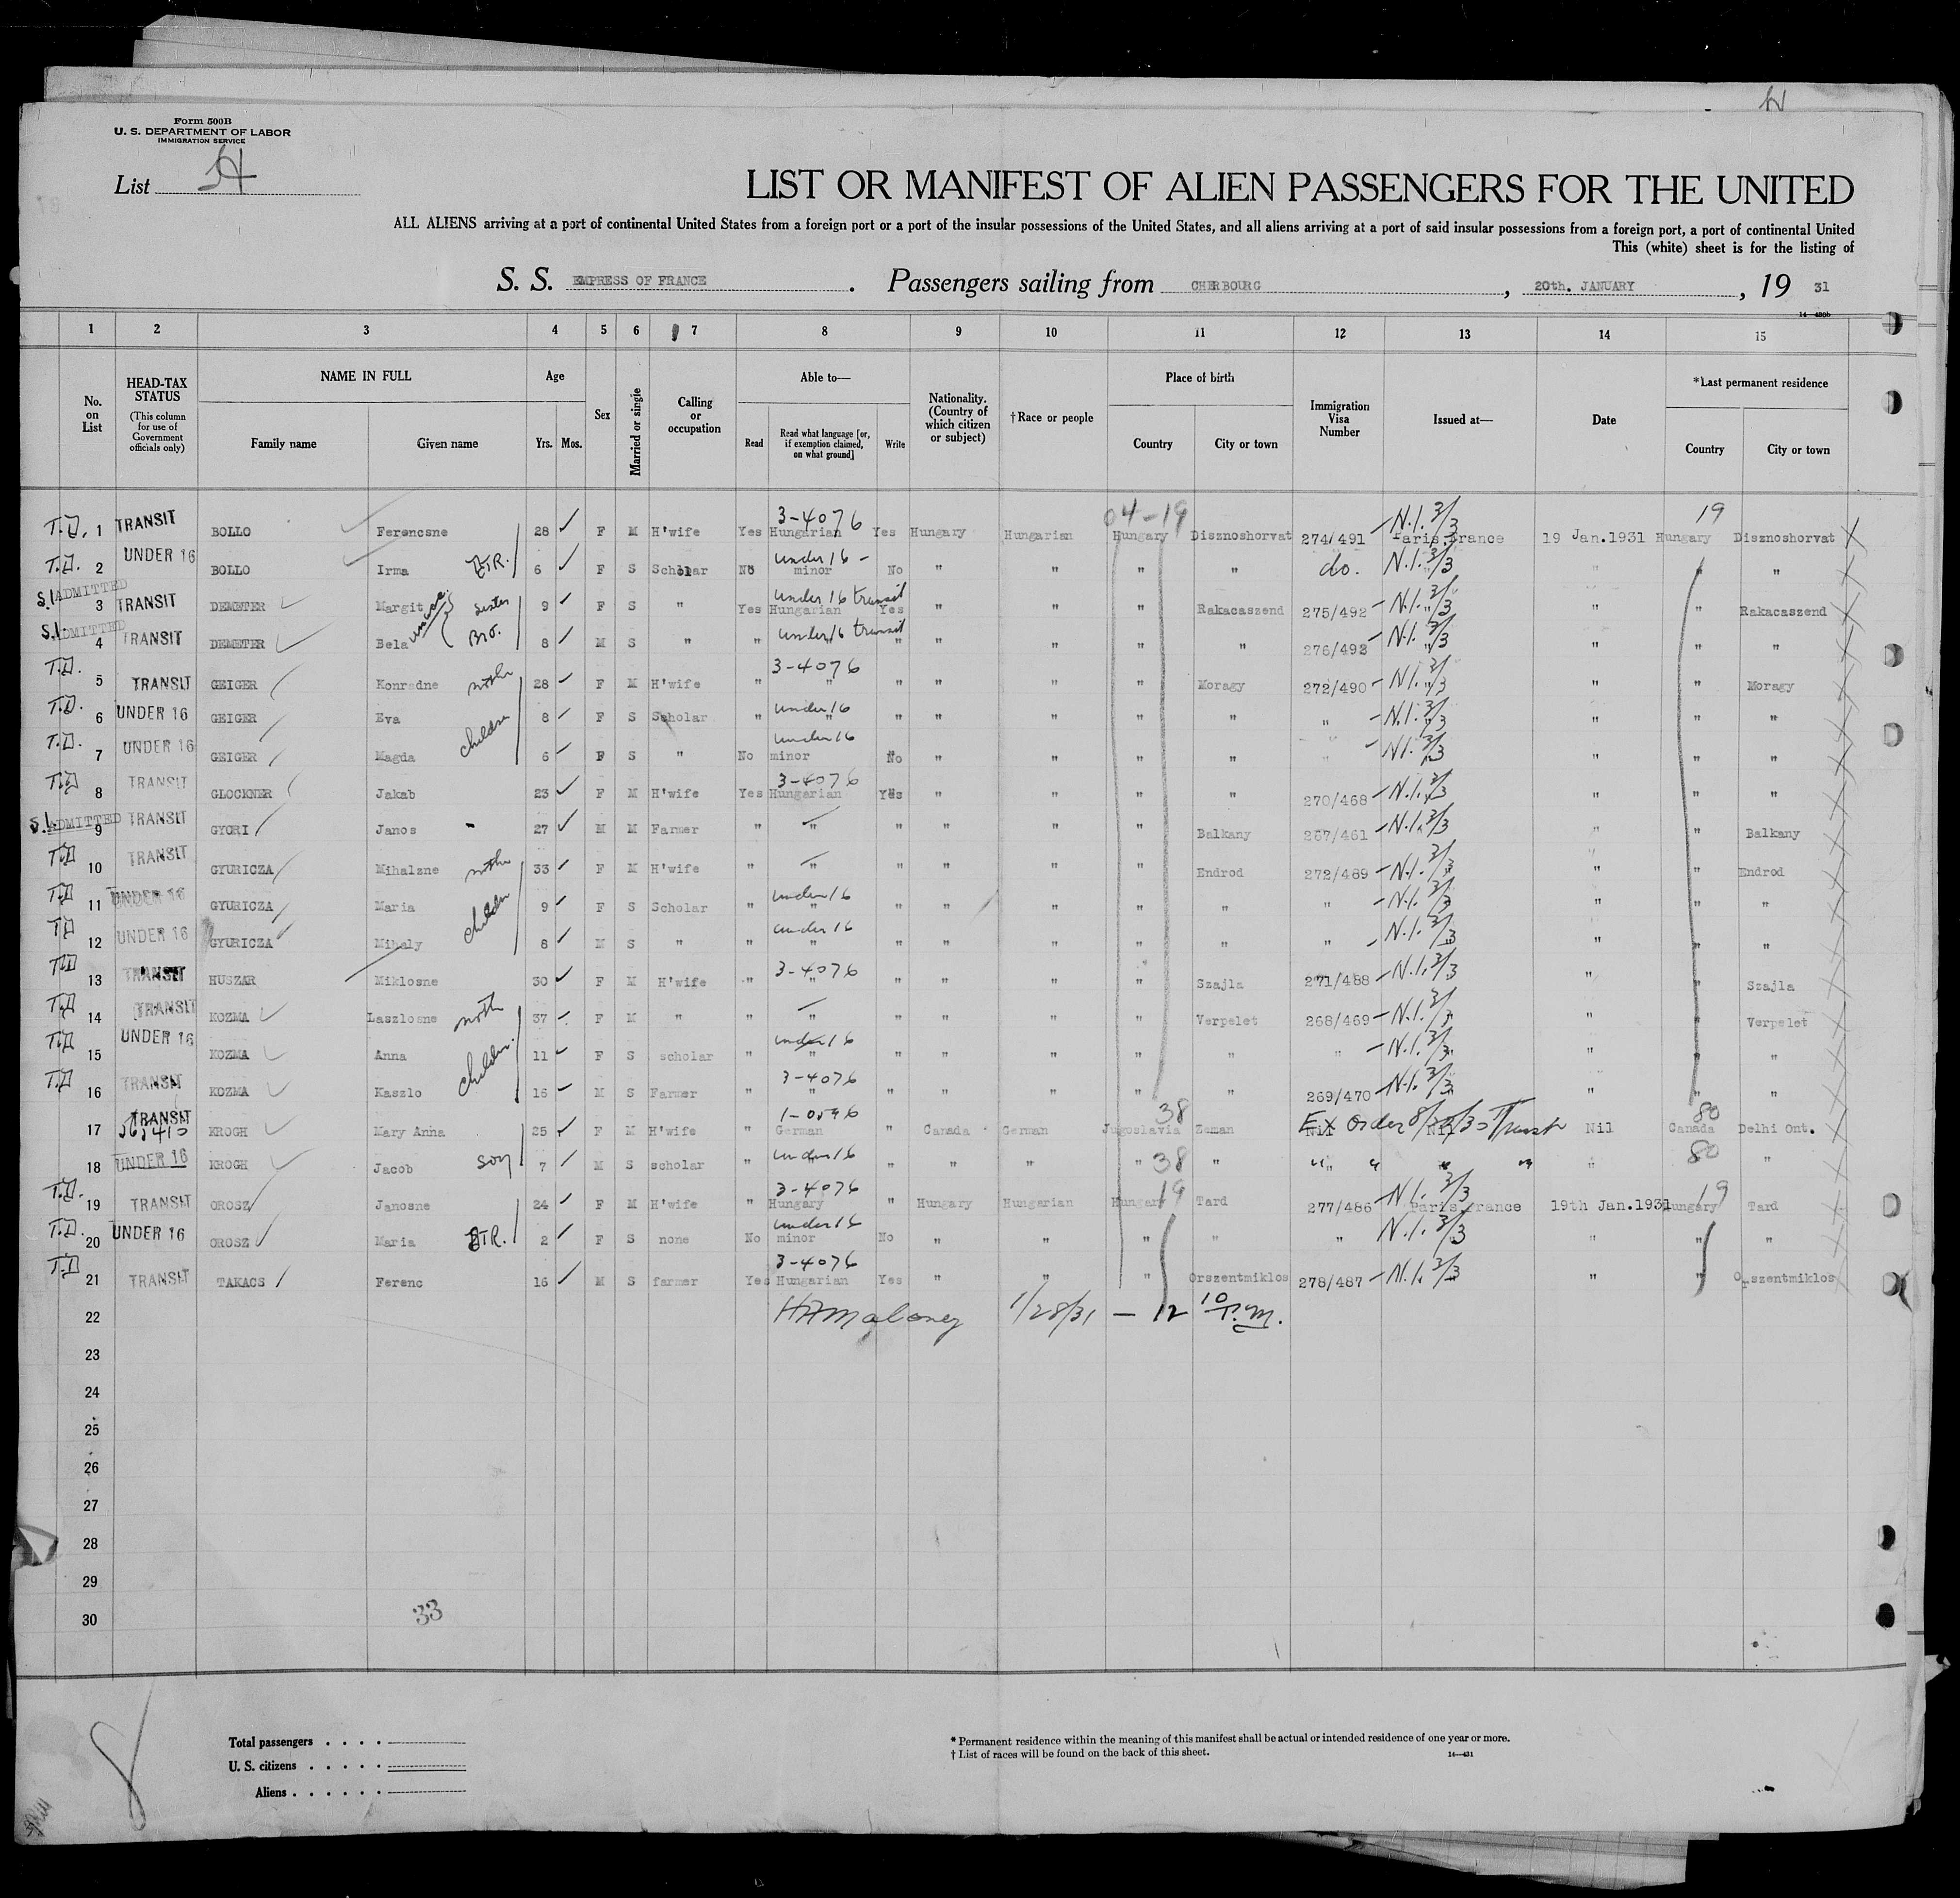 H
Form 500B
U. S. DEPARTMENT OF LABOR
IMMIGRATION SERVICE
List H
LIST OR MANIFEST OF ALIEN PASSENGERS FOR THE UNITED
ALL ALIENS arriving at a port of continental United States from a foreign port or a port of the insular possessions of the United States, and all aliens arriving at a port of said insular possessions from a foreign port, a port of continental United
This (white) sheet is for the listing of
S. S. EMPRESS OF FRANCE. Passengers sailing from CHERBOURG, 20th. JANUARY, 19 31
14—430b
1 2 3 4 5 6 7 8 9 10 11 12 13 14 15
No. on List
HEAD-TAX STATUS (This column for use of Government officials only)
NAME IN FULL Family name Given name
Age Yrs. Mos.
Sex
Married or single
Calling or occupation
Able to— Read Read what language [or, if exemption claimed, on what ground] Write
Nationality. (Country of which citizen or subject)
†Race or people
Place of birth Country City or town
Immigration Visa Number
Issued at—
Date
*Last permanent residence Country City or town
3-4076 04-19 N.I. 3/3 19
T.D. 1 TRANSIT BOLLO Ferencsne 28 F M H'wife Yes Hungarian Yes Hungary Hungarian Hungary Disznoshorvat 274/491 Paris.France 19 Jan.1931 Hungary Disznoshorvat
T.D. 2 UNDER 16 BOLLO Irma DTR. 6 F S Scholar No under 16 - minor No " " " " do. N.I. 3/3 " " "
S.I. ADMITTED 3 TRANSIT DEMETER Margit sister 9 F S " Yes under 16 transit Hungarian Yes " " " Rakacaszend 275/492 N.I. 3/3 " " Rakacaszend
S.I. ADMITTED 4 TRANSIT DEMETER Bela Bro. 8 M S " " under 16 transit " " " " " 276/493 N.I. 3/3 " " "
T.D. 5 TRANSIT GEIGER Konradne mother 28 F M H'wife " 3-4076 " " " " " Moragy 272/490 N.I. 3/3 " " Moragy
T.D. 6 UNDER 16 GEIGER Eva children 8 F S Scholar " under 16 " " " " " " " N.I. 3/3 " " "
T.D. 7 UNDER 16 GEIGER Magda 6 F S " No under 16 minor No " " " " " N.I. 3/3 " " "
T.D. 8 TRANSIT GLOCKNER Jakab 23 F M H'wife Yes 3-4076 Hungarian Yes " " " " 270/468 N.I. 3/3 " " "
S.I. ADMITTED 9 TRANSIT GYORI Janos 27 M M Farmer " " " " " " Balkany 267/461 N.I. 3/3 " " Balkany
T.D 10 TRANSIT GYURICZA Mihalzne mother 33 F M H'wife " " " " " " Endrod 272/489 N.I. 3/3 " " Endrod
T.D 11 UNDER 16 GYURICZA Maria children 9 F S Scholar " under 16 " " " " " " " N.I. 3/3 " " "
T.D 12 UNDER 16 GYURICZA Mihaly 8 M S " " under 16 " " " " " " " N.I. 3/3 " " "
T.D 13 TRANSIT HUSZAR Miklosne 30 F M H'wife " 3-4076 " " " " " Szajla 271/488 N.I. 3/3 " " Szajla
T.D 14 TRANSIT KOZMA Laszlosne moth 37 F M " " " " " " " Verpelet 268/469 N.I. 3/3 " " Verpelet
T.D 15 UNDER 16 KOZMA Anna children 11 F S scholar " under 16 " " " " " " " N.I. 3/3 " " "
T.D 16 TRANSIT KOZMA Kaszlo 16 M S Farmer " 3-4076 " " " " " " 269/470 N.I. 3/3 " " "
17 TRANSIT 565410 KROGH Mary Anna 25 F M H'wife " 1-0596 German " Canada German 38 Jugoslavia Zeman Nil Ex Order Nil Transit Nil 80 Canada Delhi Ont.
18 UNDER 16 KROGH Jacob son 7 M S scholar " under 16 " " " " " 38 " " " " " 80 "
T.D. 19 TRANSIT OROSZ Janosne 24 F M H'wife " 3-4076 Hungary " Hungary Hungarian Hungary 19 Tard 277/486 N.I. 3/3 Paris France 19th Jan.1931 Hungary 19 Tard
T.D. 20 UNDER 16 OROSZ Maria DTR. 2 F S none No under 16 minor No " " " " " N.I. 3/3 " " "
T.D 21 TRANSIT TAKACS Ferenc 16 M S farmer Yes 3-4076 Hungarian Yes " " " Orszentmiklos 278/487 N.I. 3/3 " " Orszentmiklos
22 Maloney 1/28/31 — 12 10 P.M.
23
24
25
26
27
28
29
30
33
Total passengers . . . .
U. S. citizens . . . . .
Aliens . . . . . .
* Permanent residence within the meaning of this manifest shall be actual or intended residence of one year or more.
† List of races will be found on the back of this sheet.
14—431